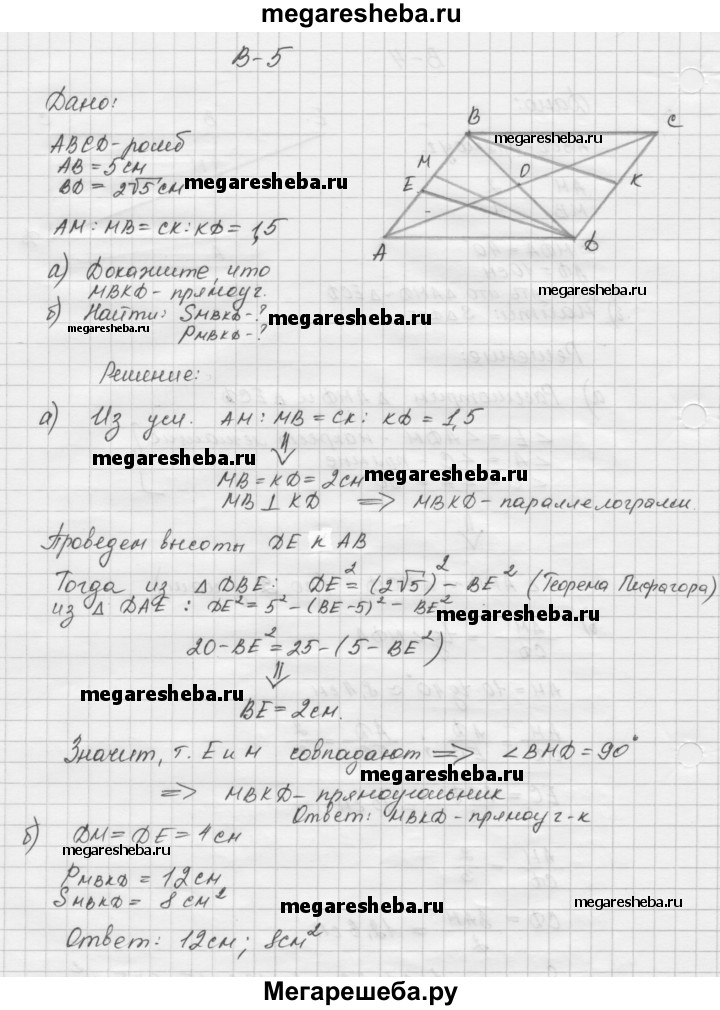 megaresheba.ru
В-5
Дано:
ABCD-ромб
AB = 5 см
BD = 2√5 см
megaresheba.ru
AM : MB = CK : KD = 1,5
а) Докажите, что
MBKD - прямоуг.
б) Найти: S MBKD - ?
megaresheba.ru
P MBKD - ?
megaresheba.ru
B
C
megaresheba.ru
M
O
E
K
A
D
Решение:
а) Из усл. AM : MB = CK : KD = 1,5
⇓
megaresheba.ru
MB = KD = 2 см
megaresheba.ru
MB ⊥ KD ⟹ MBKD - параллелограмм.
Проведем высоты DE к AB
Тогда из △ DBE: DE² = (2√5)² - BE² (Теорема Пифагора)
из △ DAE : DE² = 5² - (BE-5)² - BE²
megaresheba.ru
20 - BE² = 25 - (5 - BE²)
⇓
megaresheba.ru
BE = 2 см.
Значит, т. E и M совпадают ⟹ ∠BMD = 90°
megaresheba.ru
⟹ MBKD - прямоугольник
Ответ: MBKD - прямоуг-к
б) DM = DE = 4 см
megaresheba.ru
P MBKD = 12 см
S MBKD = 8 см²
megaresheba.ru
megaresheba.ru
Ответ: 12 см; 8 см²
Мегарешеба.ру